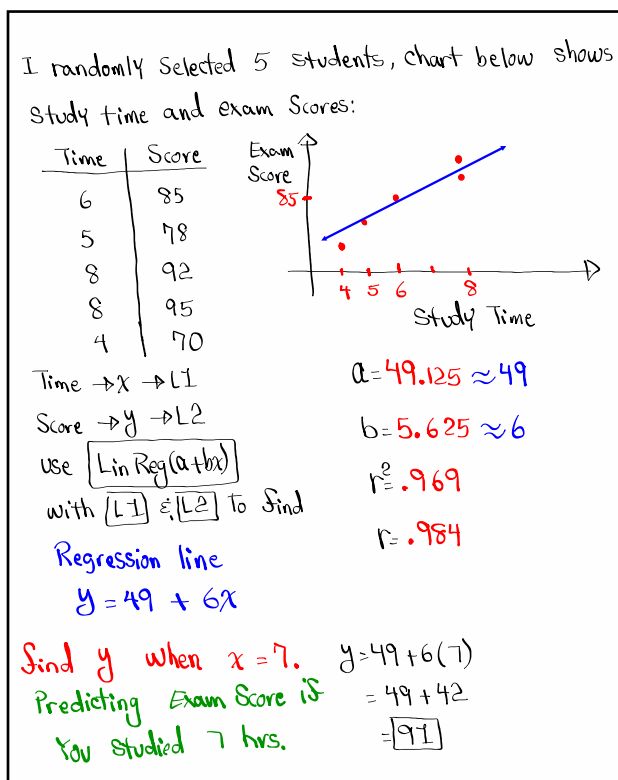 I randomly Selected 5 students, chart below shows
Study time and exam Scores:
Time Score
6 85
5 78
8 92
8 95
4 70
Exam
Score
85
4 5 6 8
Study Time
Time → x → L1
Score → y → L2
use LinReg(a+bx)
with L1 & L2 to find
a = 49.125 ≈ 49
b = 5.625 ≈ 6
r² = .969
r = .984
Regression line
y = 49 + 6x
find y when x = 7.
Predicting Exam Score if
You studied 7 hrs.
y = 49 + 6(7)
= 49 + 42
= 91